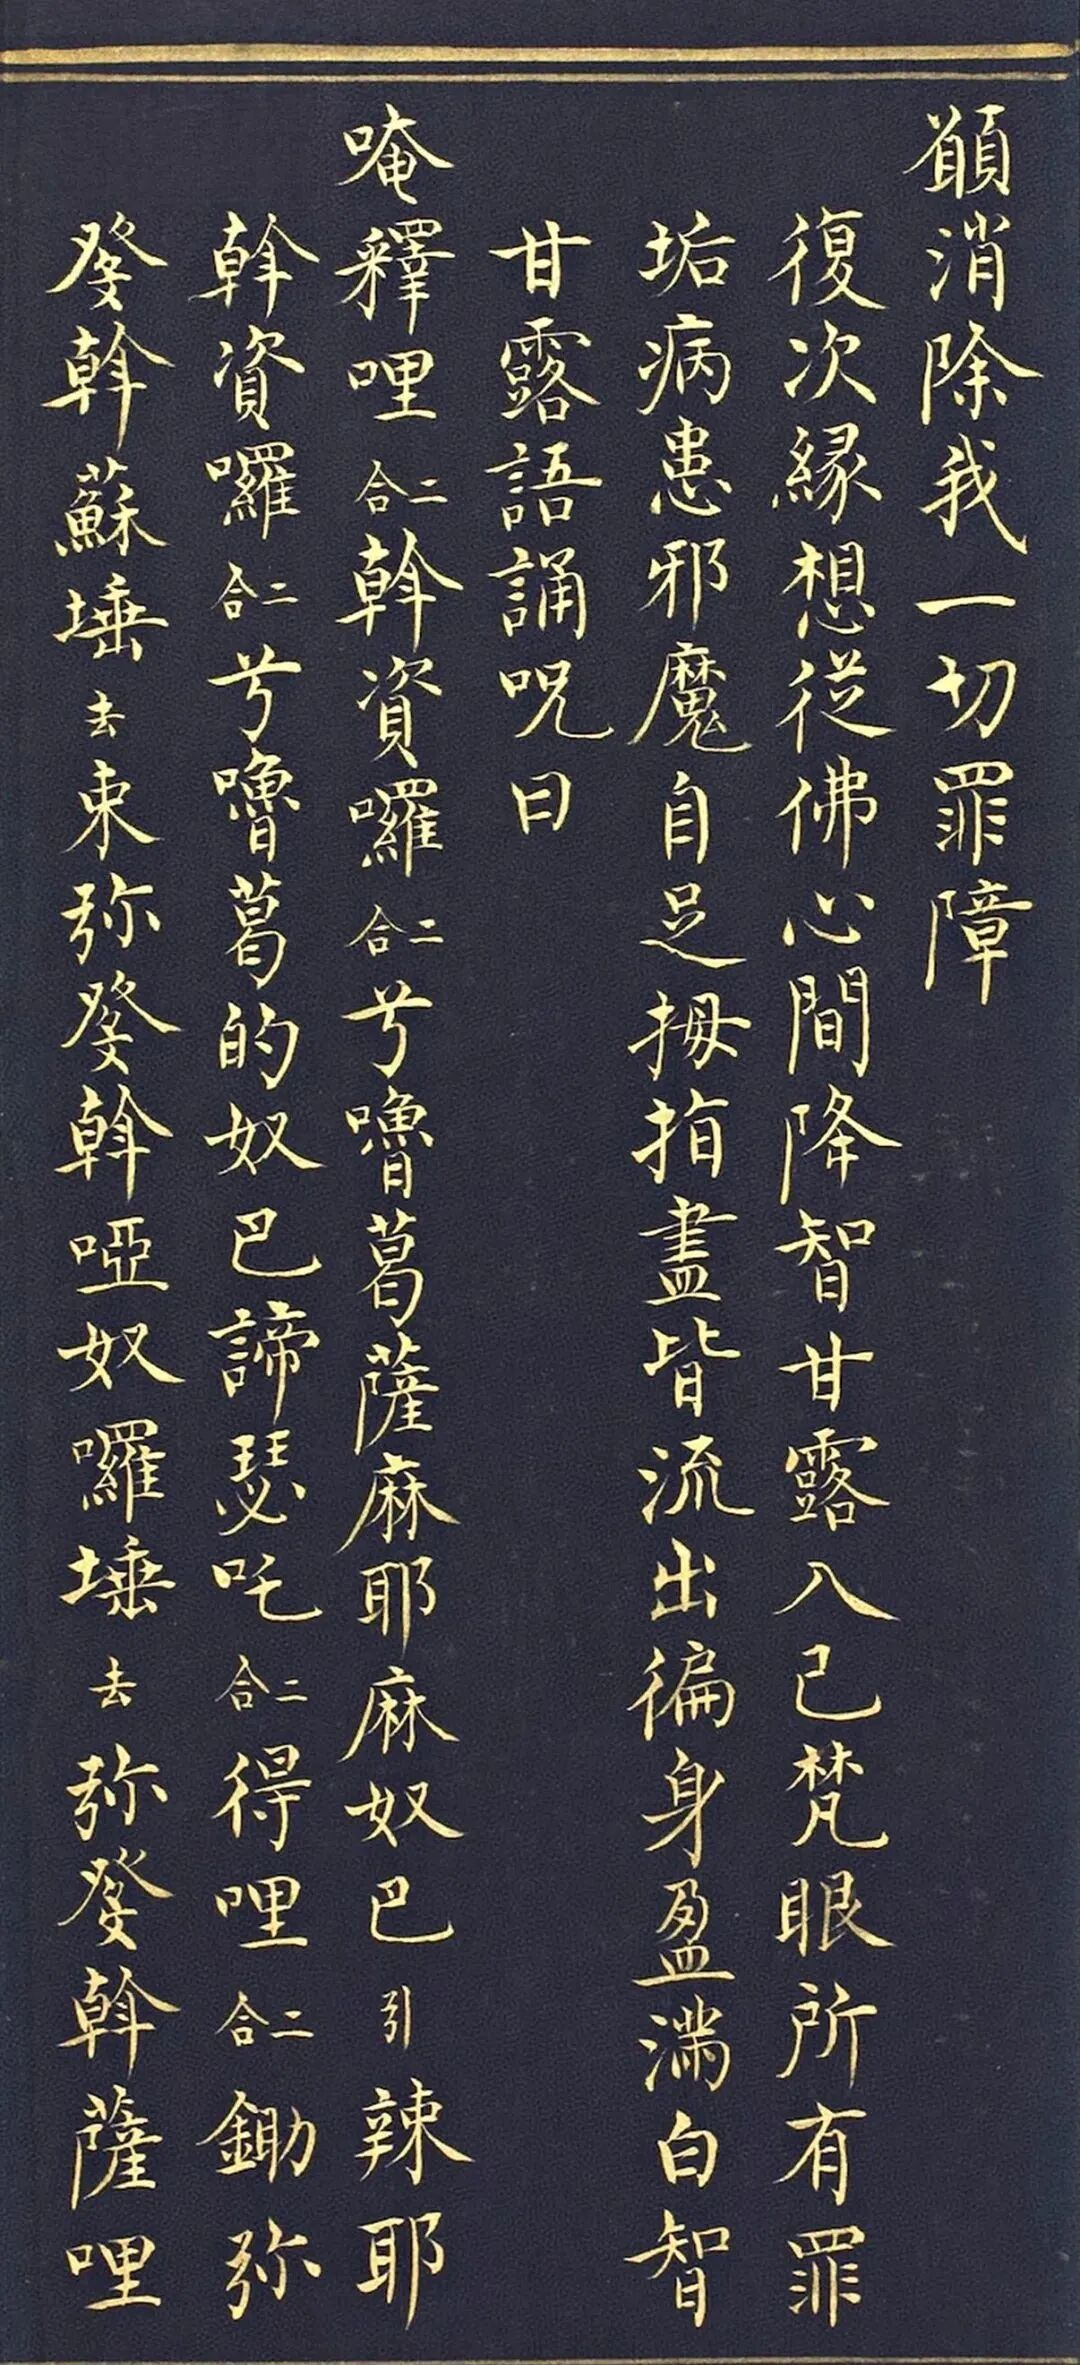 顖消除我一切罪障
復次緣想從佛心間降智甘露入己梵眼所有罪
垢病患邪魔自足拇指盡皆流出徧身盈滿白智
甘露語誦呪曰
唵釋哩二合斡資囉二合兮嚕葛薩麻耶麻奴巴引辣耶
斡資囉二合兮嚕葛的奴巴諦瑟吒二合得哩二合鋤弥
癹斡蘇埵去束弥癹斡啞奴囉埵去弥癹斡薩哩